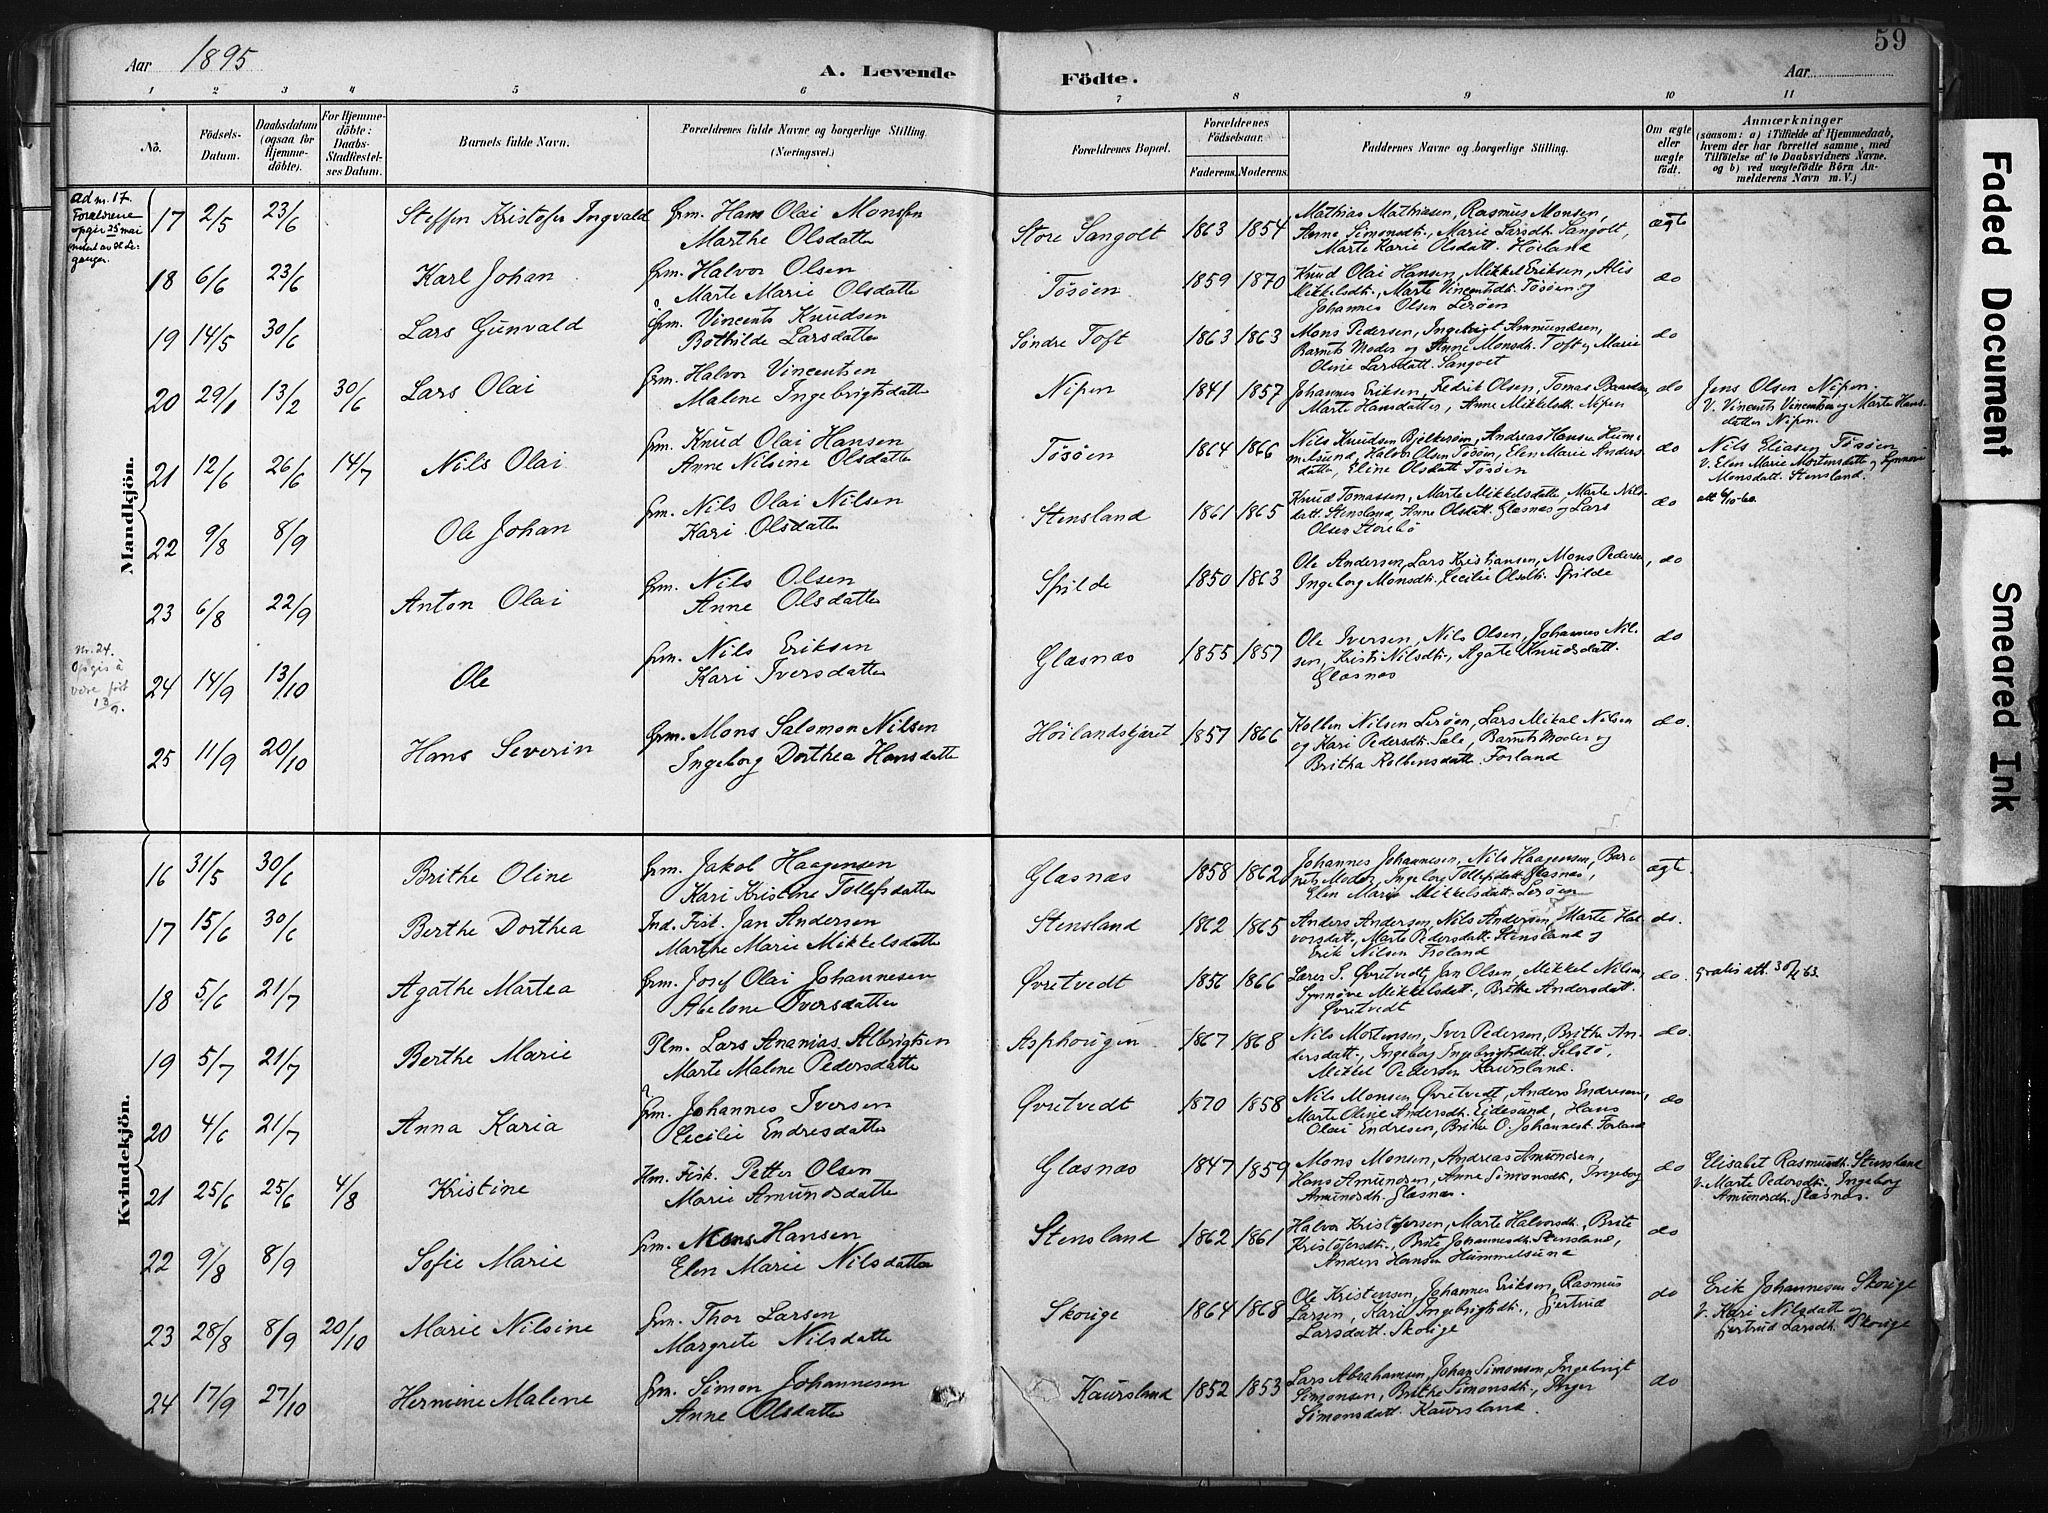 59
Aar 1895
A. Levende
Födte.
Aar
1 2 3 4 5 6 7 8 9 10 11
No.
Födsels-Datum.
Daabsdatum (ogsaa for Hjemmedöbte).
For Hjemmedöbte: Daabs-Stadfæstelses Datum.
Barnets fulde Navn.
Forældrenes fulde Navne og borgerlige Stilling.
(Næringsvei.)
Forældrenes Bopæl.
Forældrenes Födselsaar.
Faderens. Moderens.
Faddernes Navne og borgerlige Stilling.
Om ægte eller uægte födt.
Anmærkninger
(saasom: a) i Tilfælde af Hjemmedaab, hvem der har forrettet samme, med Tilföielse af to Daabsvidners Navne. og b) ved uægtefödte Börn Anmelderens Navn m. V.)
Mandkjön.
ad nr. 17.
Forældrene
opgir 25 mai
17 2/5 23/6 Steffen Kristofer Ingvald Grm. Hans Olai Monsen
Marthe Olsdatter
Store Sangolt 1863 1854 Mathias Mathiesen, Rasmus Monsen,
Anne Simonsdt., Marie Larsdt. Sangolt,
Marte Karie Olsdatt. Höiland
ægte
18 6/6 23/6 Karl Johan Grm. Halvor Olsen
Marte Marie Olsdatter
Tösöen 1859 1870 Knud Olai Hansen, Mikkel Eriksen, Alis
Mikkelsdt., Marte Vincentsdt. Tösöen og
Johannes Olsen Leröen
do
19 14/5 30/6 Lars Gunvald Grm. Vincents Knudsen
Bothilde Larsdatter
Söndre Toft 1863 1863 Mons Pedersen, Ingebrigt Ammundsen,
Barnets Moder og Anne Monsdt. Toft og Marie
Oline Larsdatt. Sangolt
do
20 29/1 13/2 30/6 Lars Olai Grm. Halvor Vincentsen
Malene Ingebrigtsdatter
Nipen 1841 1857 Johannes Eriksen, Fedrik Olsen, Tomas Baardsen,
Marte Hansdatter, Anne Mikkelsdt. Nipen
do Jens Olsen Nipen.
V. Vincents Vincentsen og Marte Hans-
datter Nipen.
21 12/6 26/6 14/7 Nils Olai Grm. Knud Olai Hansen
Anne Nilsine Olsdatter
Tösöen 1864 1866 Nils Knudsen Bjelkeröen, Andreas Hansen Hum-
melsund, Halvor Olsen Tösöen, Elen Marie Anders-
datter, Eline Olsdatt. Tösöen
do Nils Eliasen Tösöen
V. Elen Marie Mortensdatter og Synnöve
Monsdatt. Stensland.
22 9/8 8/9 Ole Johan Grm. Nils Olai Nilsen
Kari Olsdatter
Stensland 1861 1865 Knud Tomassen, Marte Mikkelsdatter, Marte Nils-
datt. Stensland, Anne Olsdatt. Glæsnæs og Lars
Olsen Storebö
do
23 6/8 22/9 Anton Olai Grm. Nils Olsen
Anne Olsdatter
Spilde 1850 1863 Ole Andersen, Lars Kristiansen, Mons Pedersen,
Ingeborg Monsdt. Cecilie Olsdt. Spilde
do
Nr. 24.
Opgis å
være født
13/9.
24 14/9 13/10 Ole Grm. Nils Eriksen
Kari Iversdatter
Glæsnæs 1855 1857 Ole Iversen, Nils Olsen, Johannes Nil-
sen, Kristi Nilsdt., Agate Knudsdatt.
Glæsnæs
do
25 11/9 20/10 Hans Severin Grm. Mons Salomon Nilsen
Ingeborg Dorthea Hansdatter
Höilandskjæret 1857 1866 Kolben Nilsen Leröen, Lars Mikal Nilsen
og Kari Pedersdt. Sæle, Barnets Moder og
Britha Kolbensdatt. Forland
do.
Kvindekjön.
16 31/5 30/6 Brithe Oline Grm. Jakob Haagensen
Kari Kristine Tollefsdatter
Glæsnæs 1858 1862 Johannes Johannesen, Nils Haagensen, Bar-
nets Moder, Ingeborg Tollefsdatt. Glæsnæs,
Elen Marie Mikkelsdatt. Leröen
ægte
17 15/6 30/6 Berthe Dorthea Ind. Fisk. Jan Andersen
Marthe Marie Mikkelsdatter
Stensland 1862 1865 Anders Andersen, Nils Andersen, Marte Hal-
vorsdatt., Marte Pedersdatt. Stensland og
Erik Nilsen Troland
do.
18 5/6 21/7 Agathe Martea Grm. Josef Olai Johannesen
Abelone Iversdatter
Øvretvedt 1856 1866 Lærer S. Øvretvedt, Jan Olsen, Mikkel Nilsen,
Synnöve Mikkelsdatt., Brithe Andersdatt.
Øvretvedt
do.
19 5/7 21/7 Berthe Marie Plm. Lars Ananias Albrigtsen
Marte Malene Pedersdatter
Asphougen 1867 1868 Nils Mortensen, Iver Pedersen, Brithe An-
dersdatt., Ingeborg Ingebrigtsdatt. Selstö,
Mikkel Pedersen Kaursland.
do.
20 4/6 21/7 Anna Karia Grm. Johannes Iversen
Cecilie Endresdatter
Øvretvedt 1870 1858 Nils Monsen Øvretvedt, Anders Endresen,
Marte Oline Andersdt. Eidesund, Hans
Olai Endresen, Brithe O. Johannesdt. Forland
do
21 25/6 25/6 4/8 Kristine Hm. Fisk. Petter Olsen
Marie Amundsdatter
Glæsnæs 1847 1859 Mons Monsen, Andreas Amundsen,
Hans Amundsen, Anne Simonsdt., Ingeborg
Amundsdt. Glæsnæs.
do Elisabet Rasmusdt. Stensland
V. Marte Pedersdt., Ingeborg
Amundsdt. Glæsnæs.
22 9/8 8/9 Sofie Marie Grm. Mons Hansen
Elen Marie Nilsdatter
Stensland 1862 1861 Halvor Kristofersen, Marte Halvorsdt., Brite
Kristofersdt., Brite Johannesdt. Stensland,
Anders Hansen Hummelsund
do
23 28/8 8/9 20/10 Marie Nilsine Grm. Thor Larsen
Margrete Nilsdatter
Skorige 1864 1868 Ole Kristensen, Johannes Eriksen, Rasmus
Larsen, Kari Ingebrigtsdt., Gjertrud
Larsdatt. Skorige
do Erik Johannesen Skorige
V. Kari Nilsdatter og
Gjertrud Larsdt. Skorige
24 17/9 27/10 Hermine Malene Grm. Simon Johannesen
Anne Olsdatter
Kaursland 1852 1853 Lars Abrahamsen, Johan Simonsen, Ingebrigt
Simonsen, Brithe Simonsdt., Inger
Simonsdatt. Kaursland.
do
Faded Document
Smeared Ink